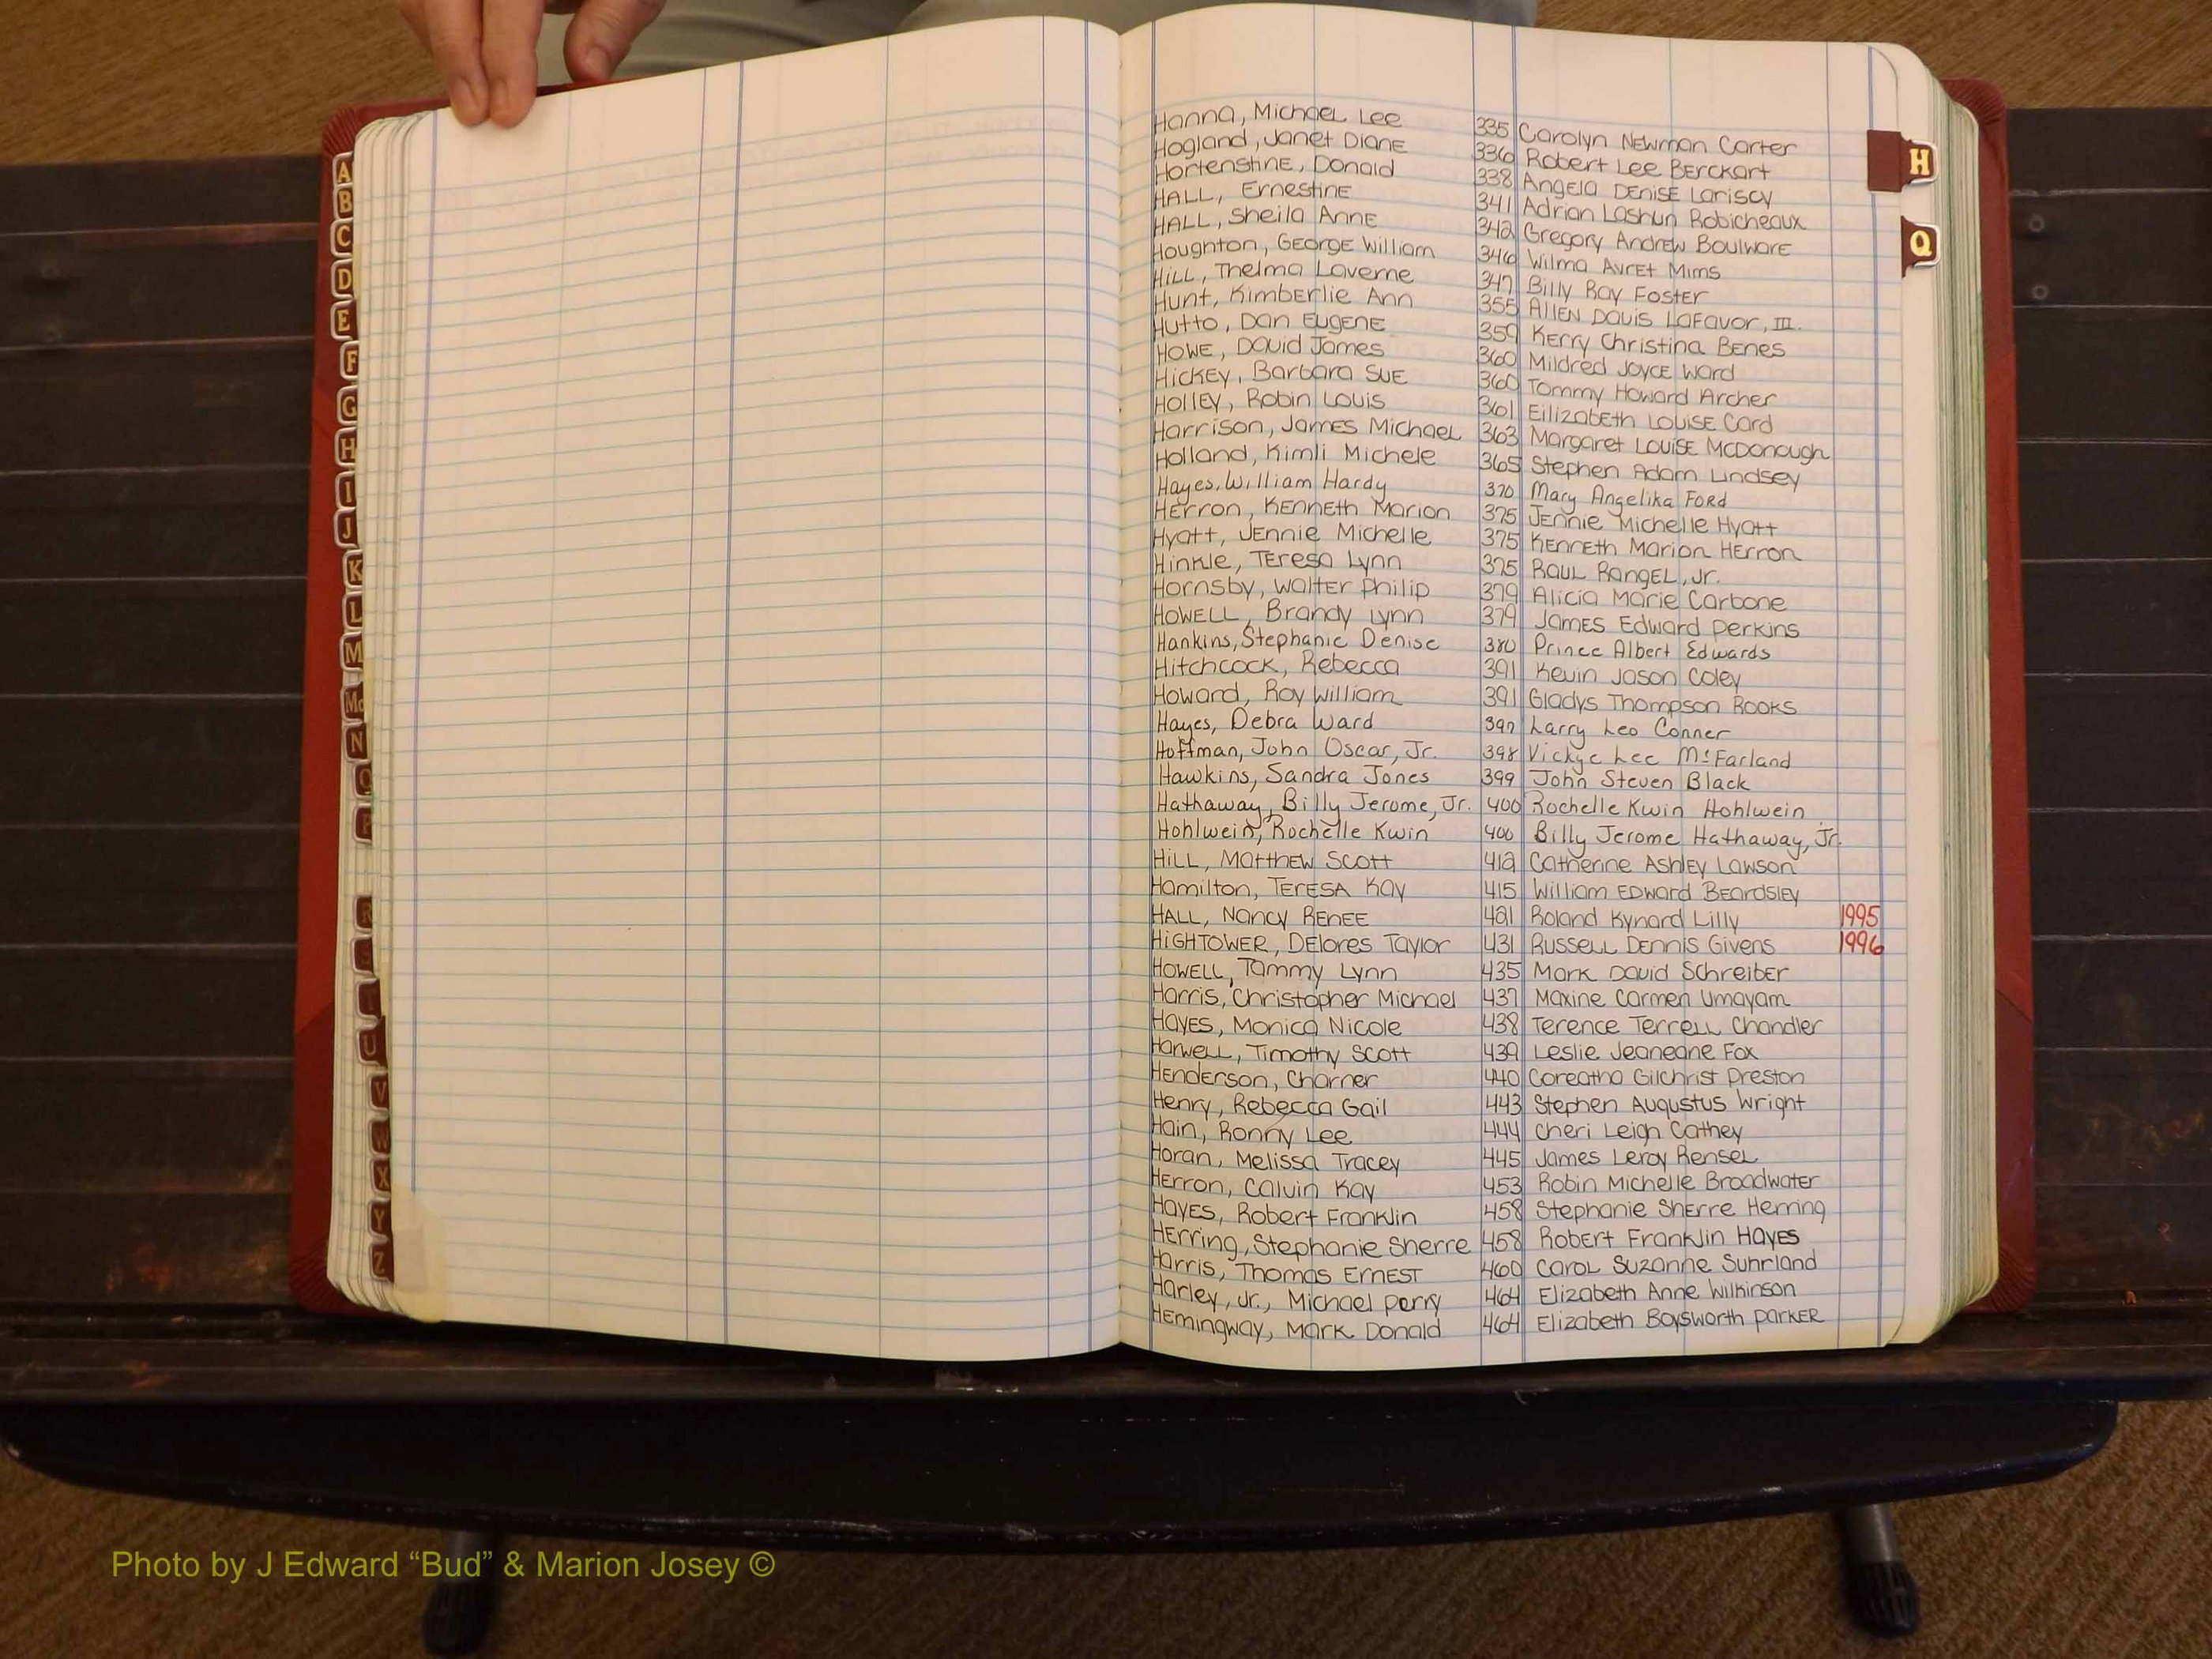 Hanna, Michael Lee 335 Carolyn Newman Carter
Hogland, Janet Diane 336 Robert Lee Berckart
Hortenstine, Donald 338 Angela Denise Lariscy
HALL, Ernestine 341 Adrian Lashun Robicheaux
HALL, Sheila Anne 342 Gregory Andrew Boulware
Houghton, George William 346 Wilma Avret Mims
Hill, Thelma Laverne 347 Billy Ray Foster
Hunt, Kimberlie Ann 355 Allen Davis LaFavor, III.
Hutto, Dan Eugene 359 Kerry Christina Benes
Howe, David James 360 Mildred Joyce Ward
Hickey, Barbara Sue 360 Tommy Howard Archer
Holley, Robin Louis 361 Eilizabeth Louise Card
Harrison, James Michael 363 Margaret Louise McDonough
Holland, Kimli Michele 365 Stephen Adam Lindsey
Hayes, William Hardy 370 Mary Angelika Ford
Herron, Kenneth Marion 375 Jennie Michelle Hyatt
Hyatt, Jennie Michelle 375 Kenneth Marion Herron
Hinkle, Teresa Lynn 375 Raul Rangel, Jr.
Hornsby, Walter Philip 379 Alicia Marie Carbone
Howell, Brandy Lynn 379 James Edward Perkins
Hankins, Stephanie Denise 380 Prince Albert Edwards
Hitchcock, Rebecca 391 Kevin Jason Coley
Howard, Roy William 391 Gladys Thompson Rooks
Hayes, Debra Ward 397 Larry Leo Conner
Hoffman, John Oscar, Jr. 398 Vickye Lee McFarland
Hawkins, Sandra Jones 399 John Steven Black
Hathaway, Billy Jerome, Jr. 400 Rochelle Kwin Hohlwein
Hohlwein, Rochelle Kwin 400 Billy Jerome Hathaway, Jr.
Hill, Matthew Scott 412 Catherine Ashley Lawson
Hamilton, Teresa Kay 415 William Edward Beardsley
HALL, Nancy Renee 421 Roland Kynard Lilly 1995
HIGHTOWER, Delores Taylor 431 Russell Dennis Givens 1996
Howell, Tammy Lynn 435 Mark David Schreiber
Harris, Christopher Michael 437 Maxine Carmen Umayam
Hayes, Monica Nicole 438 Terence Terrell Chandler
Harwell, Timothy Scott 439 Leslie Jeaneane Fox
Henderson, Charner 440 Coreatha Gilchrist Preston
Henry, Rebecca Gail 443 Stephen Augustus Wright
Hain, Ronny Lee 444 Cheri Leigh Cathey
Horan, Melissa Tracey 445 James Leroy Rensel
Herron, Calvin Kay 453 Robin Michelle Broadwater
Hayes, Robert Franklin 458 Stephanie Sherre Herring
Herring, Stephanie Sherre 458 Robert Franklin Hayes
Harris, Thomas Ernest 460 Carol Suzanne Suhrland
Harley, Jr., Michael Perry 464 Elizabeth Anne Wilkinson
Hemingway, Mark Donald 464 Elizabeth Boysworth Parker
H
Q
A
B
C
D
E
F
G
H
I
J
K
L
M
Mc
N
O
P
R
S
T
U
V
W
X
Y
Z
Photo by J Edward “Bud” & Marion Josey ©